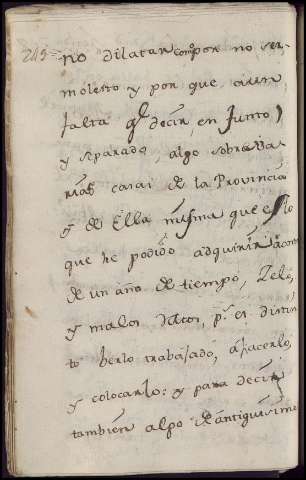 243=
no dilatar como por no ser
molesto y por que aun
falta q̃ decir, en Junto)
y separado, algo sobre va
rias casas de la Provincia
y de Ella misma que es lo
que he podido adquirir a costa
de un año de tiempo, zelo,
y malos datos, p.s es distin
to berlo trabajado, a hacerlo,
y colocarlo: y para decir
tambien algo de antiguisimo